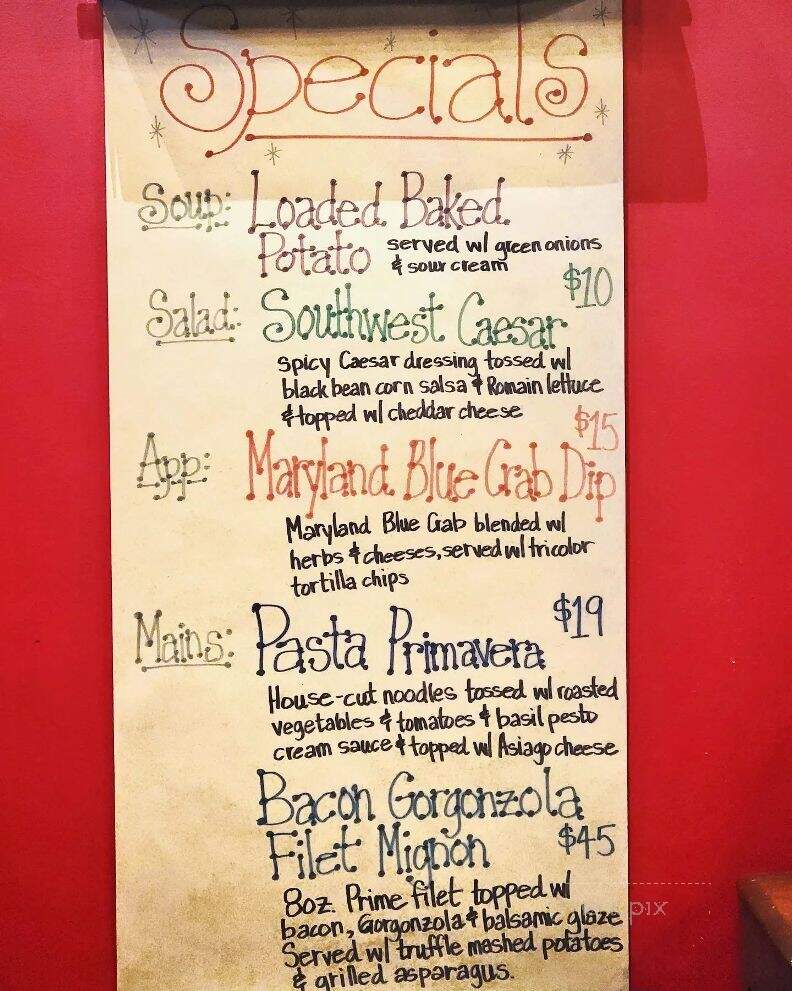 Specials
Soup: Loaded Baked
Potato served w/ green onions
& sour cream
$10
Salad: Southwest Caesar
spicy Caesar dressing tossed w/
black bean corn salsa & Romain lettuce
& topped w/ cheddar cheese
$15
App: Maryland Blue Crab Dip
Maryland Blue Crab blended w/
herbs & cheeses, served w/ tricolor
tortilla chips
$19
Mains: Pasta Primavera
House-cut noodles tossed w/ roasted
vegetables & tomatoes & basil pesto
cream sauce & topped w/ Asiago cheese
Bacon Gorgonzola
Filet Mignon $45
8oz. Prime filet topped w/
bacon, Gorgonzola & balsamic glaze
Served w/ truffle mashed potatoes
& grilled asparagus.
pix